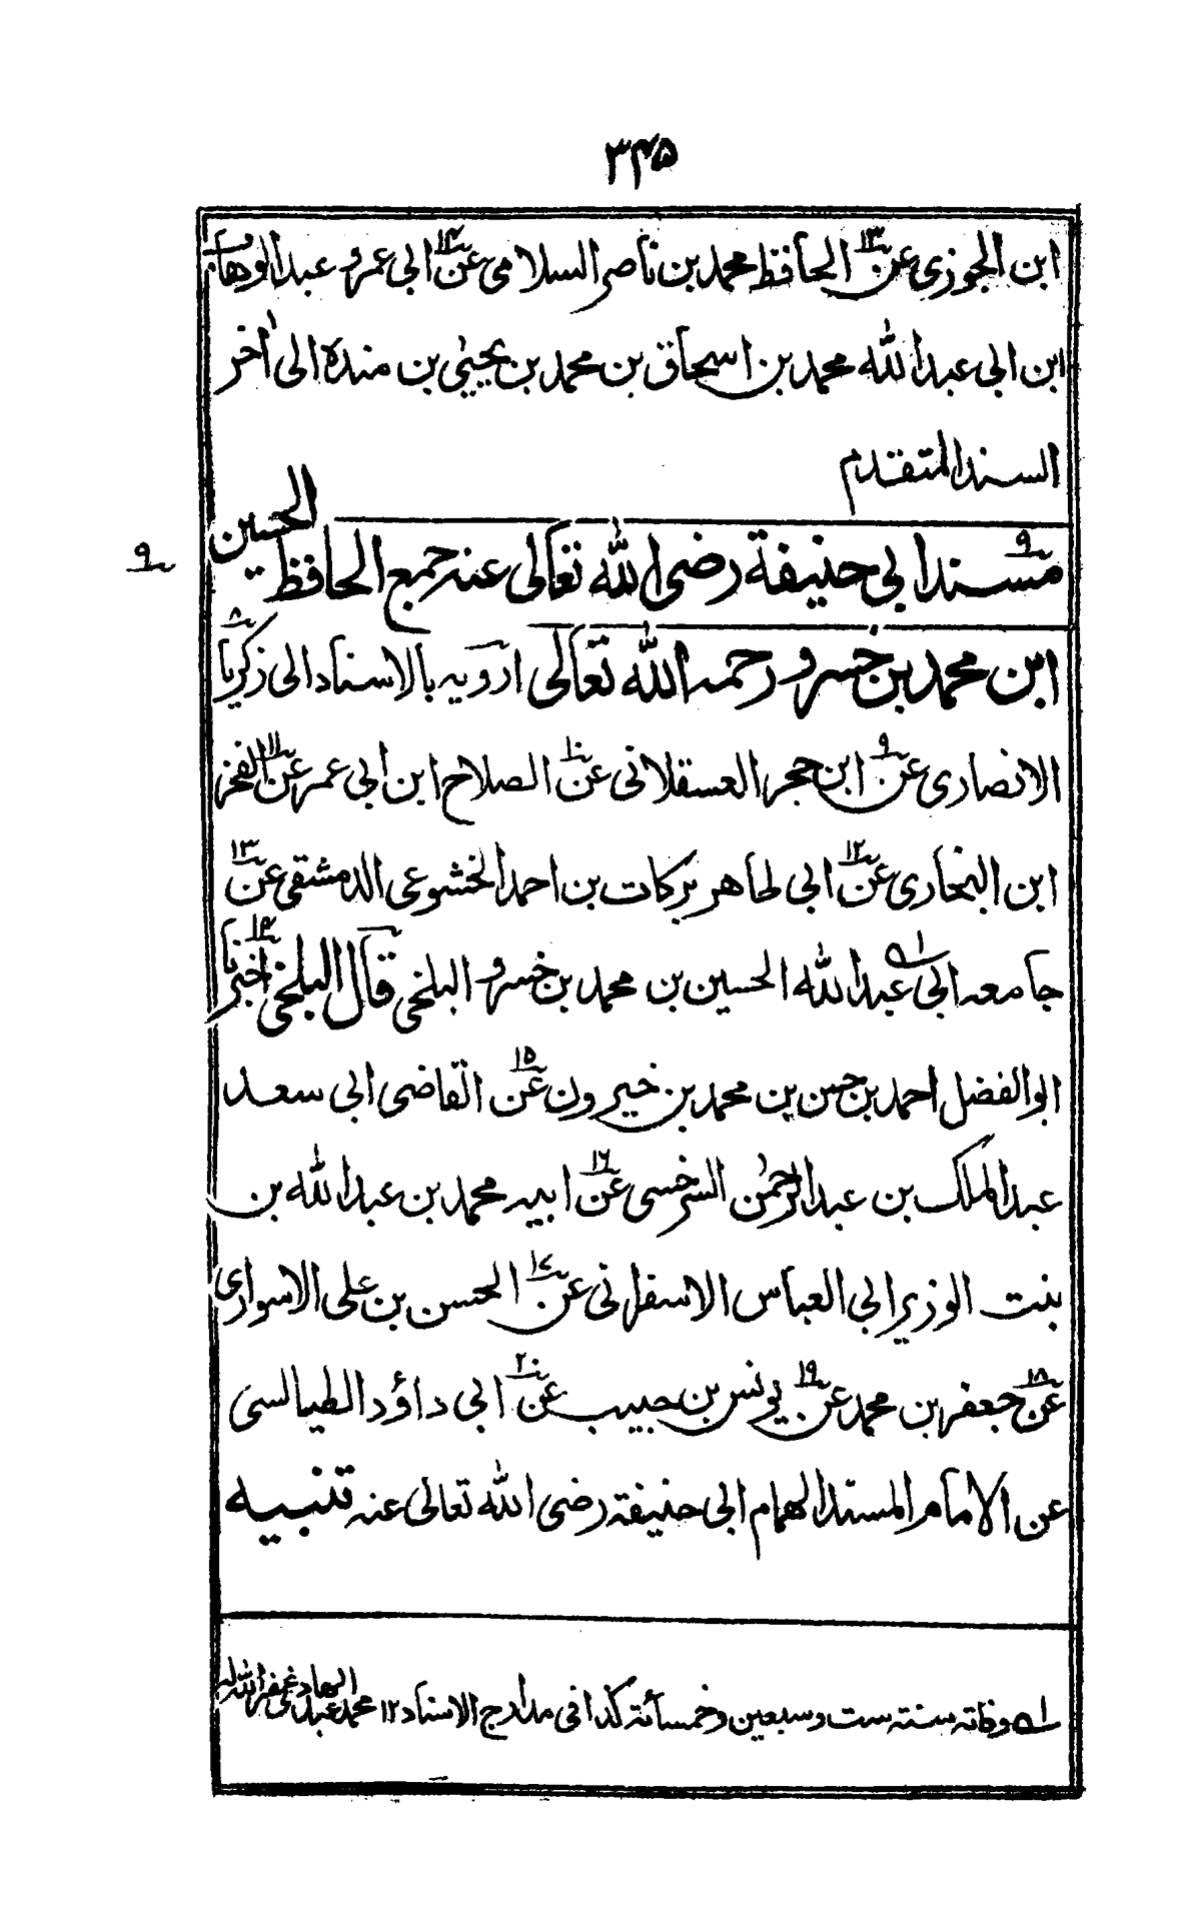 ۳۴۵
ابن الجوزی عن۱۳ الحافظ محمد بن ناصر السلامی عن۱۴ ابی عمرو عبد الوهاب
ابن ابی عبد الله محمد بن اسحاق بن محمد بن یحیٰی بن مندہ الی اٰخر
السند المتقدم
۹ مسند ابی حنیفة رضی الله تعالی عنه جمع الحافظ الحسین
۹
ابن محمد بن خسرو رحمه الله تعالی ارویه بالاسناد الی زکریا۸
الانصاری عن۹ ابن حجر العسقلانی عن۱۰ الصلاح ابن ابی عمر عن۱۱ الفخر
ابن البخاری عن۱۲ ابی طاهر برکات بن احمد الخشوعی الدمشقی عن۱۳
جامعه ابی عبد الله الحسین بن محمد بن خسرو البلخی قال البلخی اخبرنا۱۴
ابو الفضل احمد بن حسن بن محمد بن خیرون عن۱۵ القاضی ابی سعد
عبد الملک بن عبد الرحمٰن السرخسی عن۱۶ ابیه محمد بن عبد الله بن
بنت الوزیر ابی العباس الاسفرانی عن۱۷ الحسن بن علی الاسواری
عن۱۸ جعفر بن محمد عن۱۹ یونس بن حبیب عن۲۰ ابی داؤد الطیالسی
عن الامام المسند الهمام ابی حنیفة رضی الله تعالی عنه تنبیه
لـه وفاته سنة ست وسبعین وخمسأئة کذا فی مدارج الاسناد ۱۲ محمد عبد الهادی غفر الله له